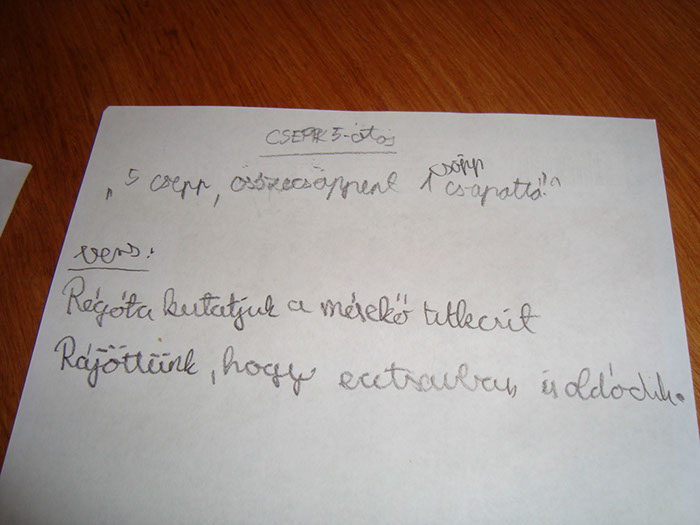 CSEPP 5-ötös
„5 csepp, összecsöppent 1 csöpp csapattá!"
vers:
Régóta kutatjuk a mészkő titkait
Rájöttünk, hogy ecetsavban is oldódik.